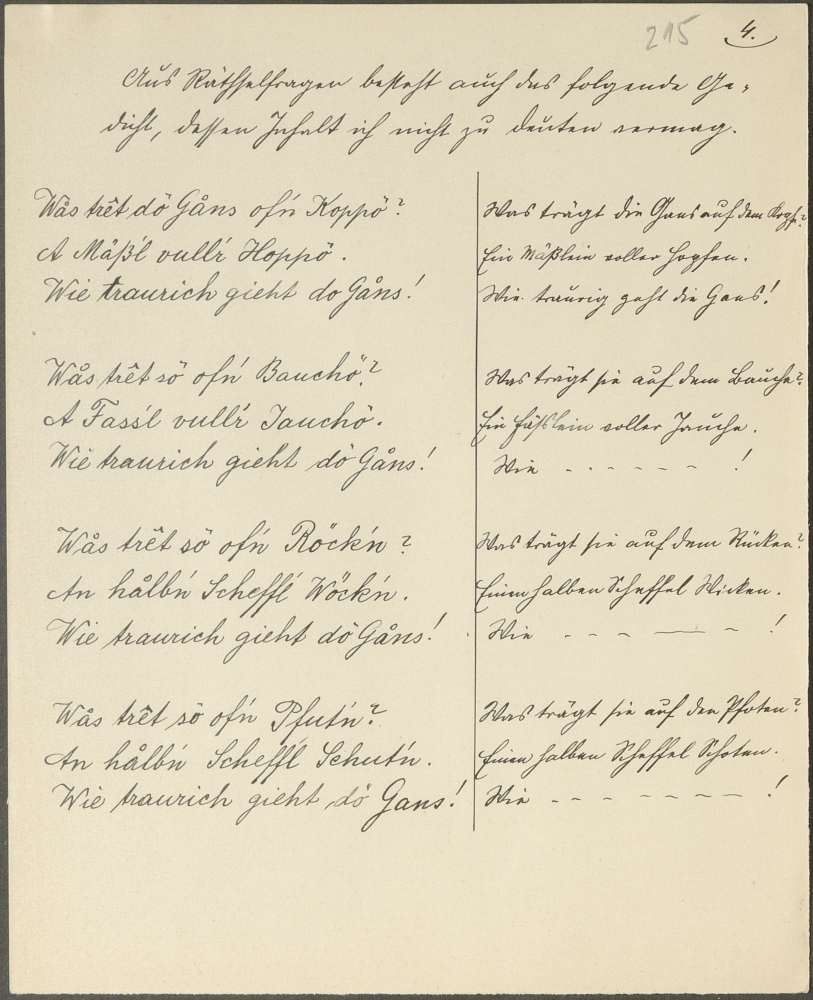 215 4.
Aus Räthselfragen besteht auch das folgende Ge-
dicht, dessen Inhalt ich nicht zu deuten vermag.
Wås trêt dö Gåns ofn' Koppö?
A Måß'l vull'r Hoppö.
Wie traurich gieht do Gåns!
Wås trêt sö ofn' Bauchö?
A Fass'l vull'r Jauchö.
Wie traurich gieht dö Gåns!
Wås trêt sö ofn' Röck'n?
An hålbn' Scheff'l Wöck'n.
Wie traurich gieht dö Gåns!
Wås trêt sö ofn' Pfut'n?
An hålbn' Scheff'l Schut'n.
Wie traurich gieht dö Gans!
Was trägt die Gans auf dem Kopfe?
Ein Mäßlein voller Hopfen.
Wie traurig geht die Gans!
Was trägt sie auf dem Bauche?
Ein Fässlein voller Jauche.
Wie - - - - - - !
Was trägt sie auf dem Rücken?
Einen halben Scheffel Wicken.
Wie - - - — - !
Was trägt sie auf den Pfoten?
Einen halben Scheffel Schoten.
Wie - - - - - - - !